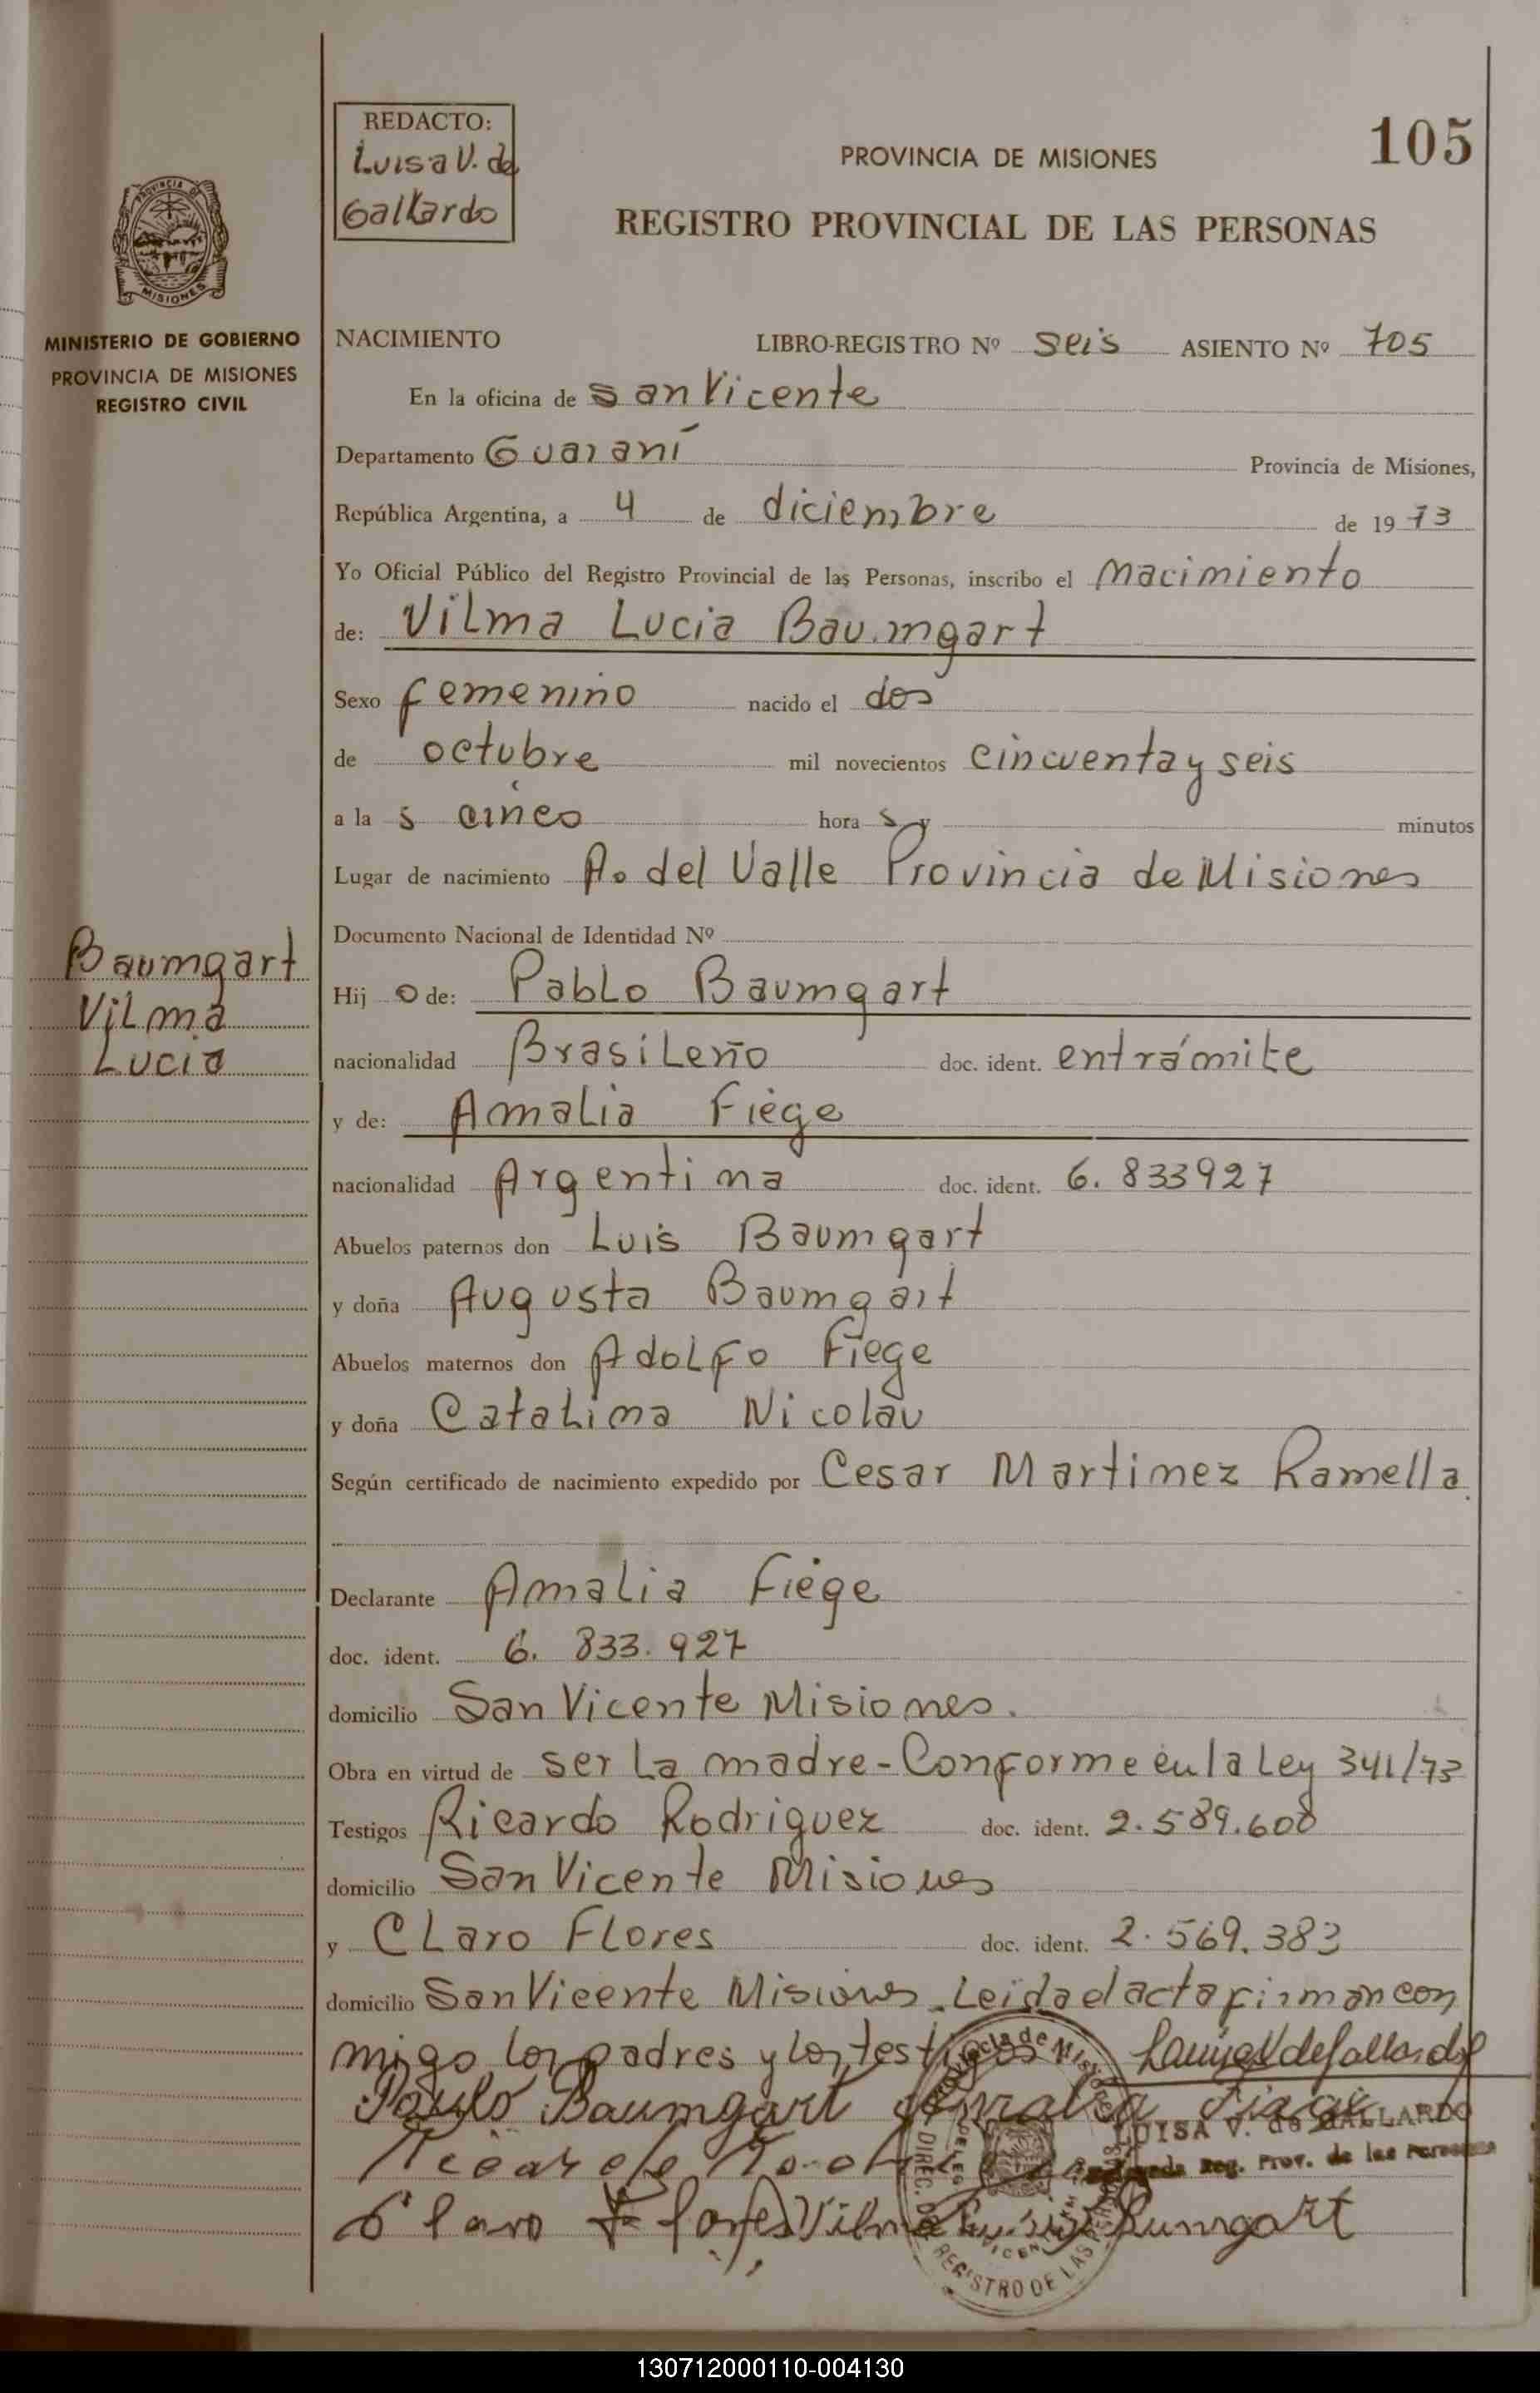 REDACTO:
Luisa V. de
Gallardo
105
PROVINCIA DE MISIONES
REGISTRO PROVINCIAL DE LAS PERSONAS
PROVINCIA DE
MISIONES
MINISTERIO DE GOBIERNO
PROVINCIA DE MISIONES
REGISTRO CIVIL
NACIMIENTO LIBRO-REGISTRO Nº seis ASIENTO Nº 705
En la oficina de San Vicente
Departamento Guaraní Provincia de Misiones,
República Argentina, a 4 de diciembre de 1973
Yo Oficial Público del Registro Provincial de las Personas, inscribo el nacimiento
de: Vilma Lucia Baumgart
Sexo femenino nacido el dos
de octubre mil novecientos cincuenta y seis
a la s cinco hora s y minutos
Lugar de nacimiento Ao del Valle Provincia de Misiones
Documento Nacional de Identidad Nº
Baumgart
Vilma
Lucia
Hij o de: Pablo Baumgart
nacionalidad Brasileño doc. ident. en trámite
y de: Amalia Fiege
nacionalidad Argentina doc. ident. 6.833927
Abuelos paternos don Luis Baumgart
y doña Augusta Baumgart
Abuelos maternos don Adolfo Fiege
y doña Catalina Nicolau
Según certificado de nacimiento expedido por Cesar Martinez Ramella.
Declarante Amalia Fiege
doc. ident. 6. 833.927
domicilio San Vicente Misiones.
Obra en virtud de ser la madre-Conforme en la Ley 341/73
Testigos Ricardo Rodriguez doc. ident. 2.589.608
domicilio San Vicente Misiones
y Claro Flores doc. ident. 2.569.383
domicilio San Vicente Misiones. Leida el acta firman con
migo los padres y los testigos Luisa V de Gallardo
Paulo Baumgart Amalia Fiege
LUISA V. de GALLARDO
Reg. Prov. de las Personas
Claro Flores Vilma Lucia Baumgart
Provincia de Misiones
DIREC. DE REGISTRO DE LAS
130712000110-004130